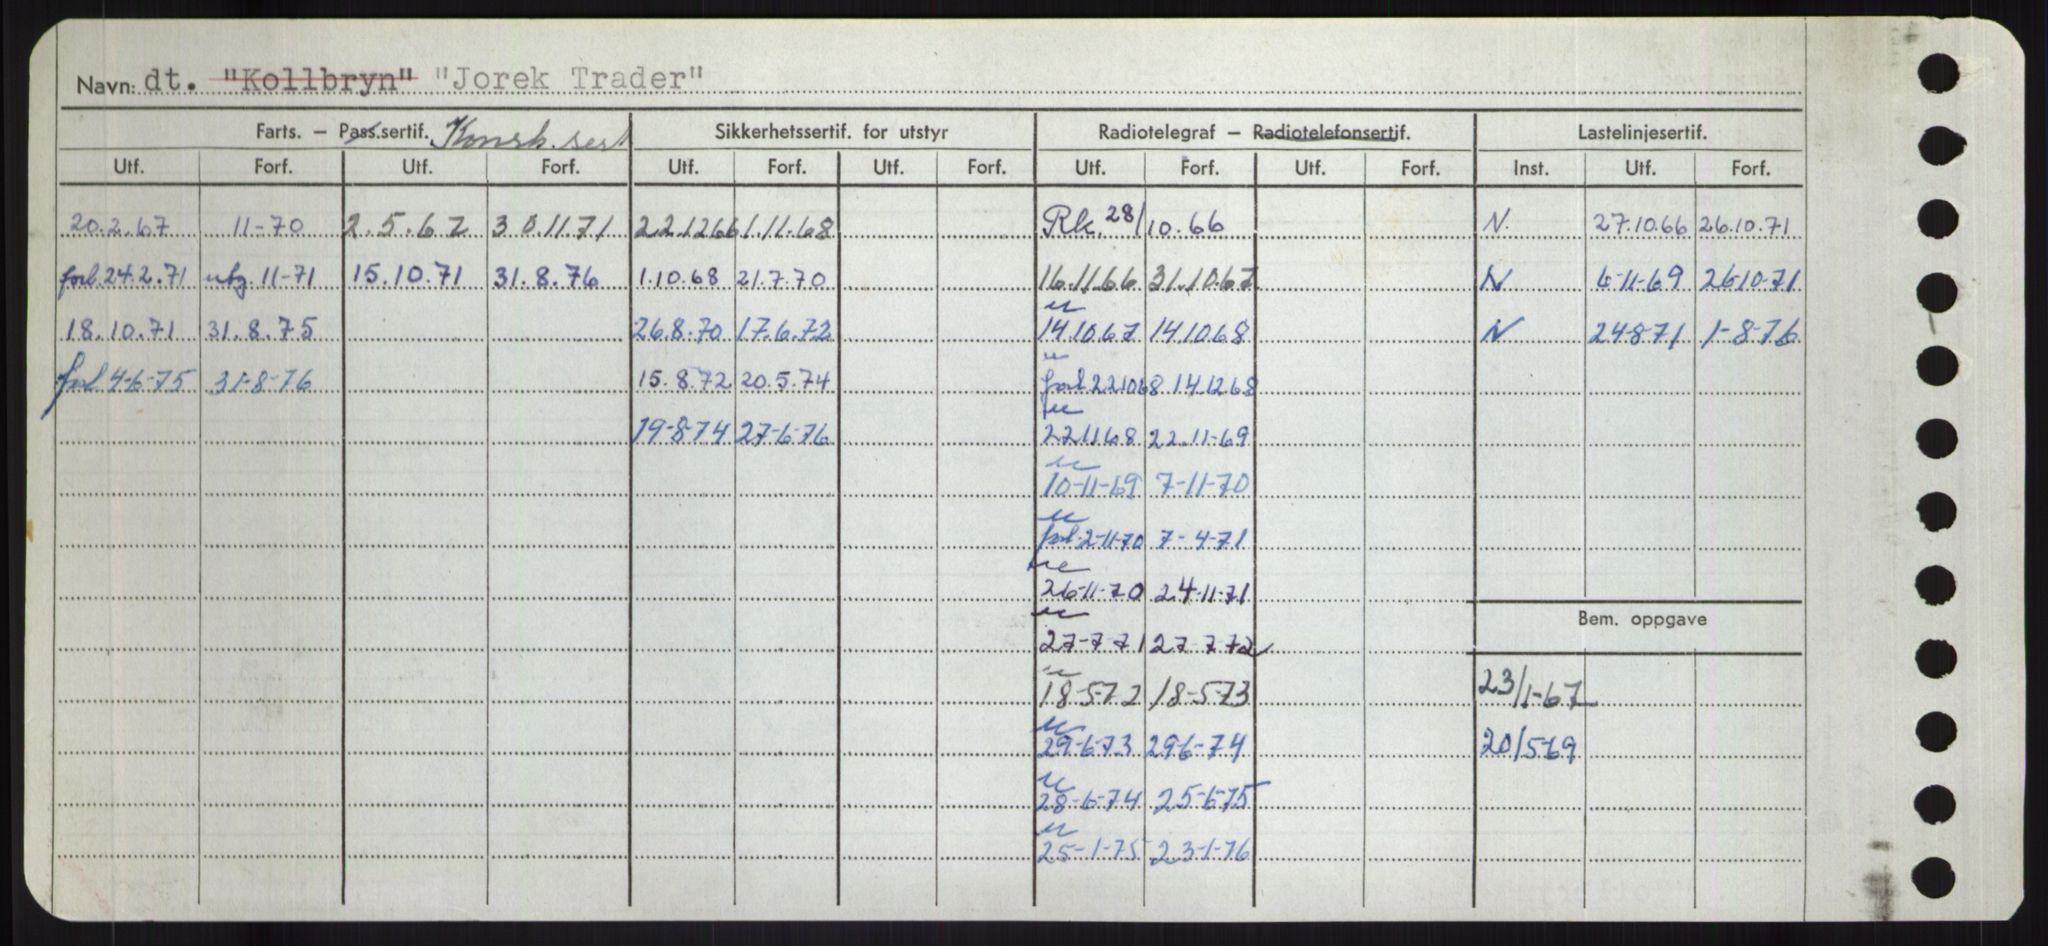 Navn: dt. "Kollbryn" "Jorek Trader"
Farts. – Pass.sertif. Konstr. sert Sikkerhetssertif. for utstyr Radiotelegraf – Radiotelefonsertif. Lastelinjesertif.
Utf. Forf. Utf. Forf. Utf. Forf. Utf. Forf. Utf. Forf. Utf. Forf. Inst. Utf. Forf.
20.2.67 11-70 2.5.67 30.11.71 22.12.66 1.11.68 Rk. 28/10.66 N. 27.10.66 26.10.71
forl. 24.2.71 utg. 11-71 15.10.71 31.8.76 1.10.68 21.7.70 16.11.66 31.10.67 N 6-11-69 26-10-71
18.10.71 31.8.75 26.8.70 17.6.72 14.10.67 14.10.68 N 24-8-71 1-8-76
forl. 4-6-75 31-8-76 15.8.72 20.5.74 forl. 22.10.68 14.12.68
19-8-74 27-6-76 22.11.68 22.11-69
10-11-69 7-11-70
forl. 2-11-70 7-4-71
26-11-70 24-11-71
Bem. oppgave
27-7-71 27-7-72
18-5-72 18-5-73 23/1-67
29-6-73 29-6-74 20/5-69
28-6-74 25-6-75
25-1-75 23-1-76